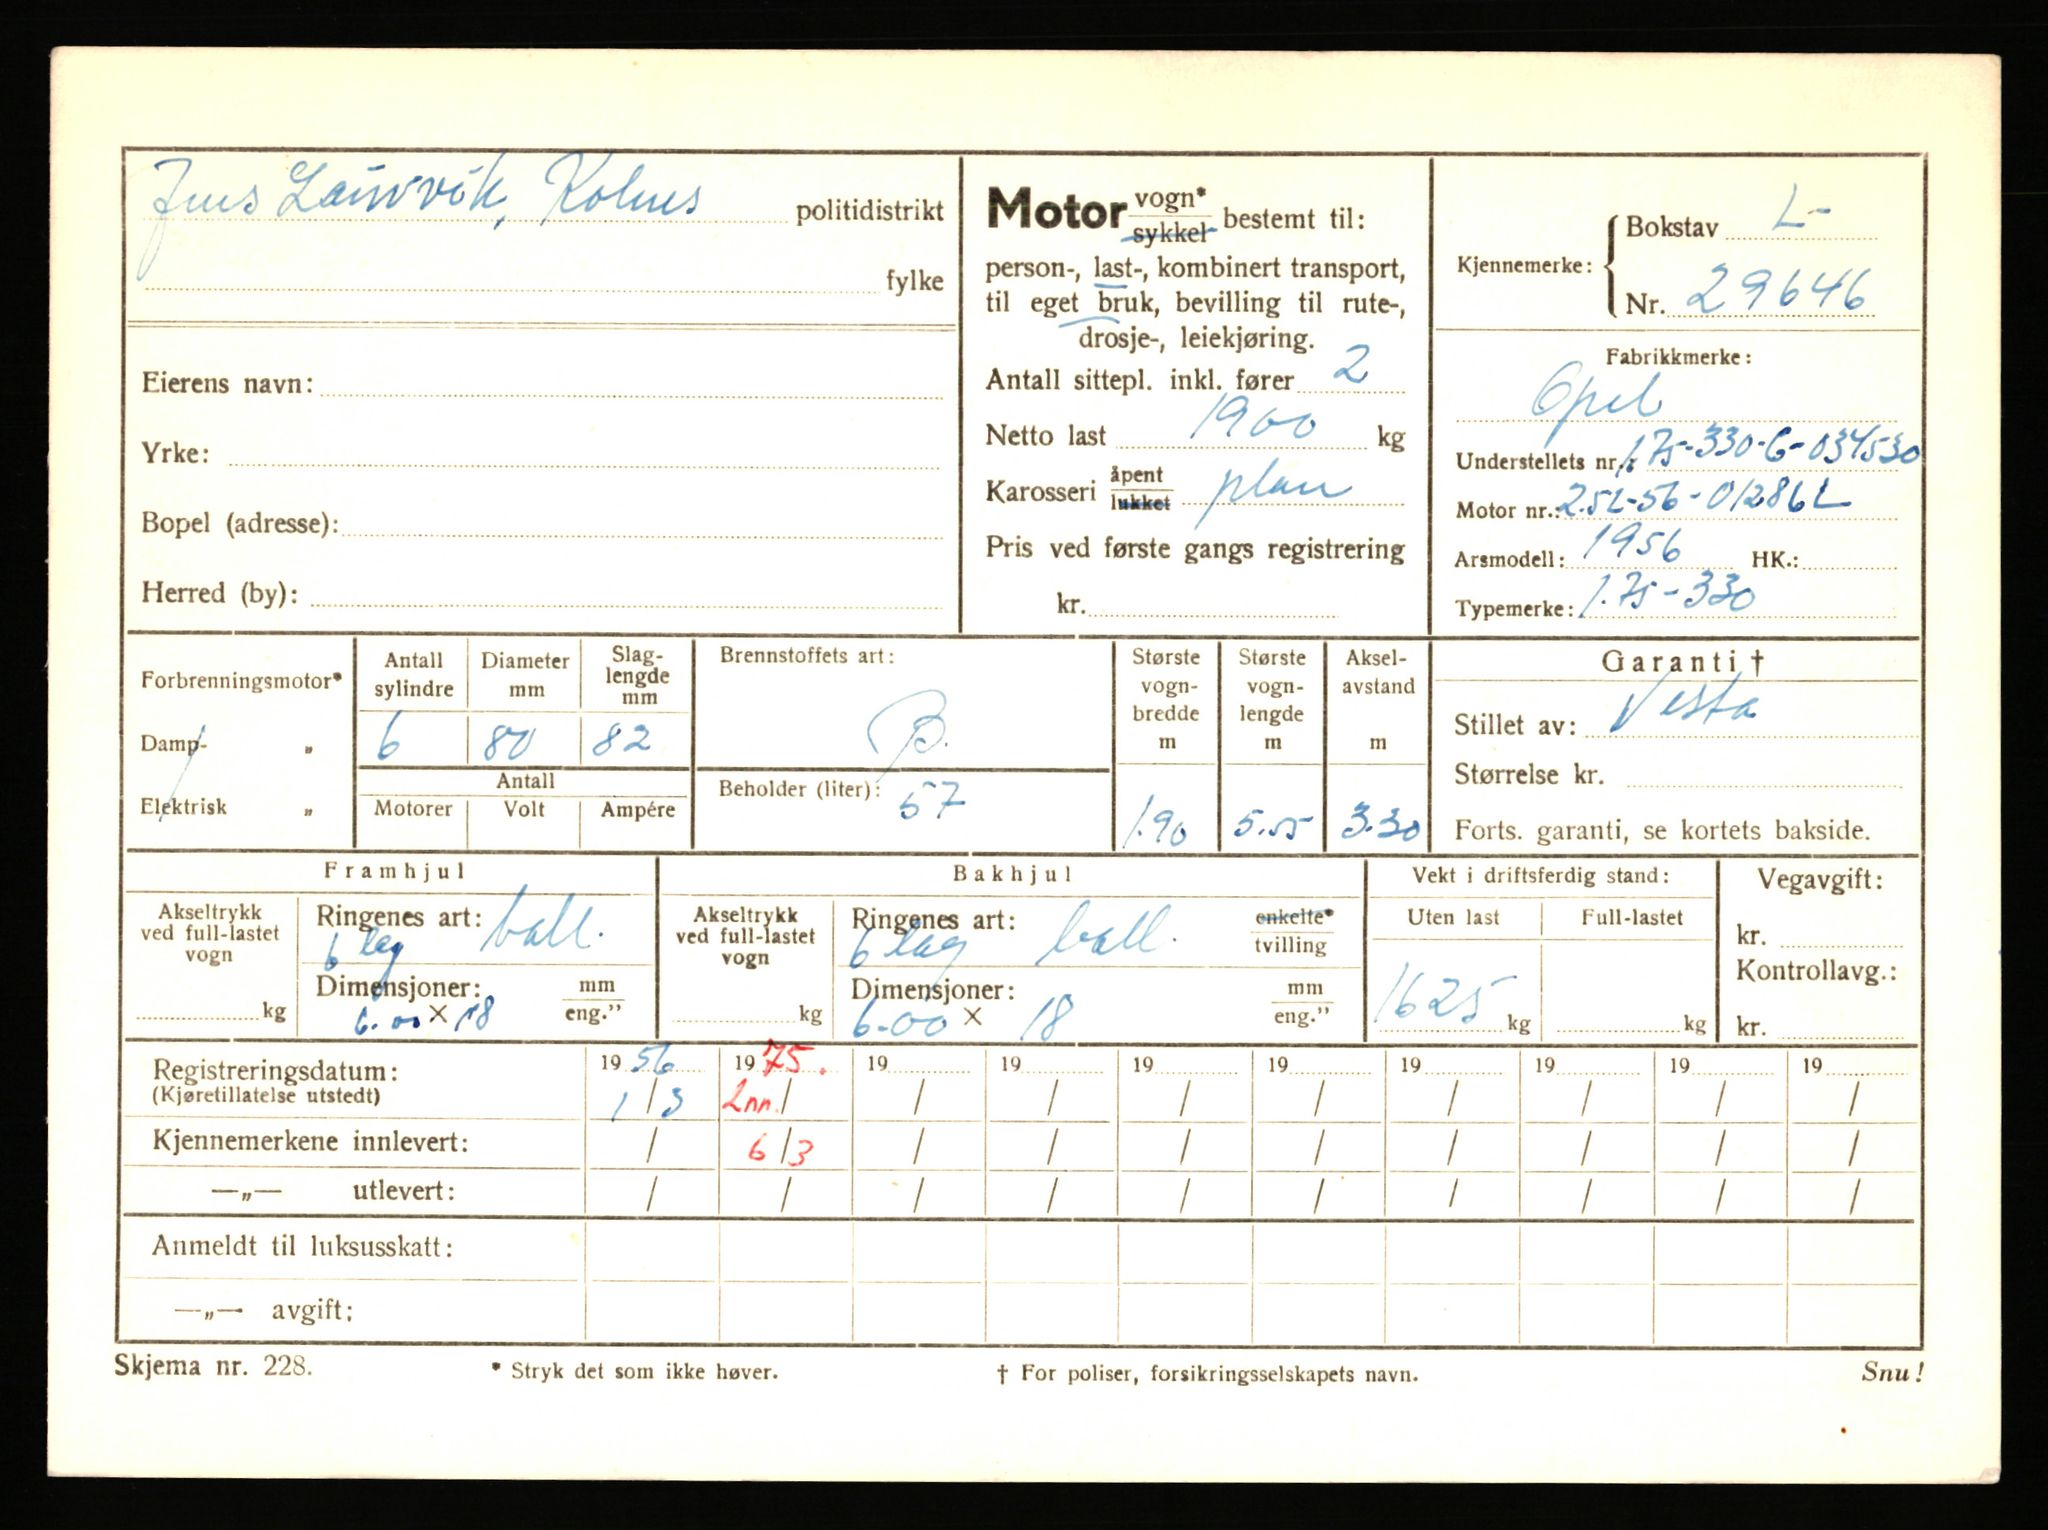 Jens Lauvvik, Kolnes politidistrikt
fylke
Eierens navn:
Yrke:
Bopel (adresse):
Herred (by):
Motor vogn* sykkel bestemt til:
person-, last-, kombinert transport,
til eget bruk, bevilling til rute-,
drosje-, leiekjøring.
Antall sittepl. inkl. fører 2
Netto last 1900 kg
Karosseri åpent lukket plan
Pris ved første gangs registrering
kr.
Kjennemerke: Bokstav L-
Nr. 29646
Fabrikkmerke:
Opel
Understellets nr.: 1.75-330-6-034530
Motor nr.: 2.5L-56-01286L
Arsmodell: 1956 HK.:
Typemerke: 1.75-330
Forbrenningsmotor*
Damp- „
Elektrisk „
Antall sylindre Diameter mm Slag-lengde mm
6 80 82
Antall
Motorer Volt Ampére
Brennstoffets art:
B.
Beholder (liter): 57
Største vogn-bredde m Største vogn-lengde m Aksel-avstand m
1.90 5.55 3.30
Garanti †
Stillet av: Vesta
Størrelse kr.
Forts. garanti, se kortets bakside.
Framhjul
Akseltrykk
ved full-lastet
vogn
kg
Ringenes art: ball.
6 lag
Dimensjoner: mm
6.00 × 18 eng.”
Bakhjul
Akseltrykk
ved full-lastet
vogn
kg
Ringenes art: ball. enkelte*
6 lag tvilling
Dimensjoner: mm
6-00 × 18 eng.”
Vekt i driftsferdig stand:
Uten last Full-lastet
1625 kg kg
Vegavgift:
kr.
Kontrollavg.:
kr.
Registreringsdatum: 19 56 19 75. 19 19 19 19 19 19 19 19
(Kjøretillatelse utstedt) 1/3 Inn. / / / / / / / / /
Kjennemerkene innlevert: / 6/3 / / / / / / / /
—„— utlevert: / / / / / / / / / /
Anmeldt til luksusskatt:
—„— avgift:
Skjema nr. 228. * Stryk det som ikke høver. † For poliser, forsikringsselskapets navn. Snu!